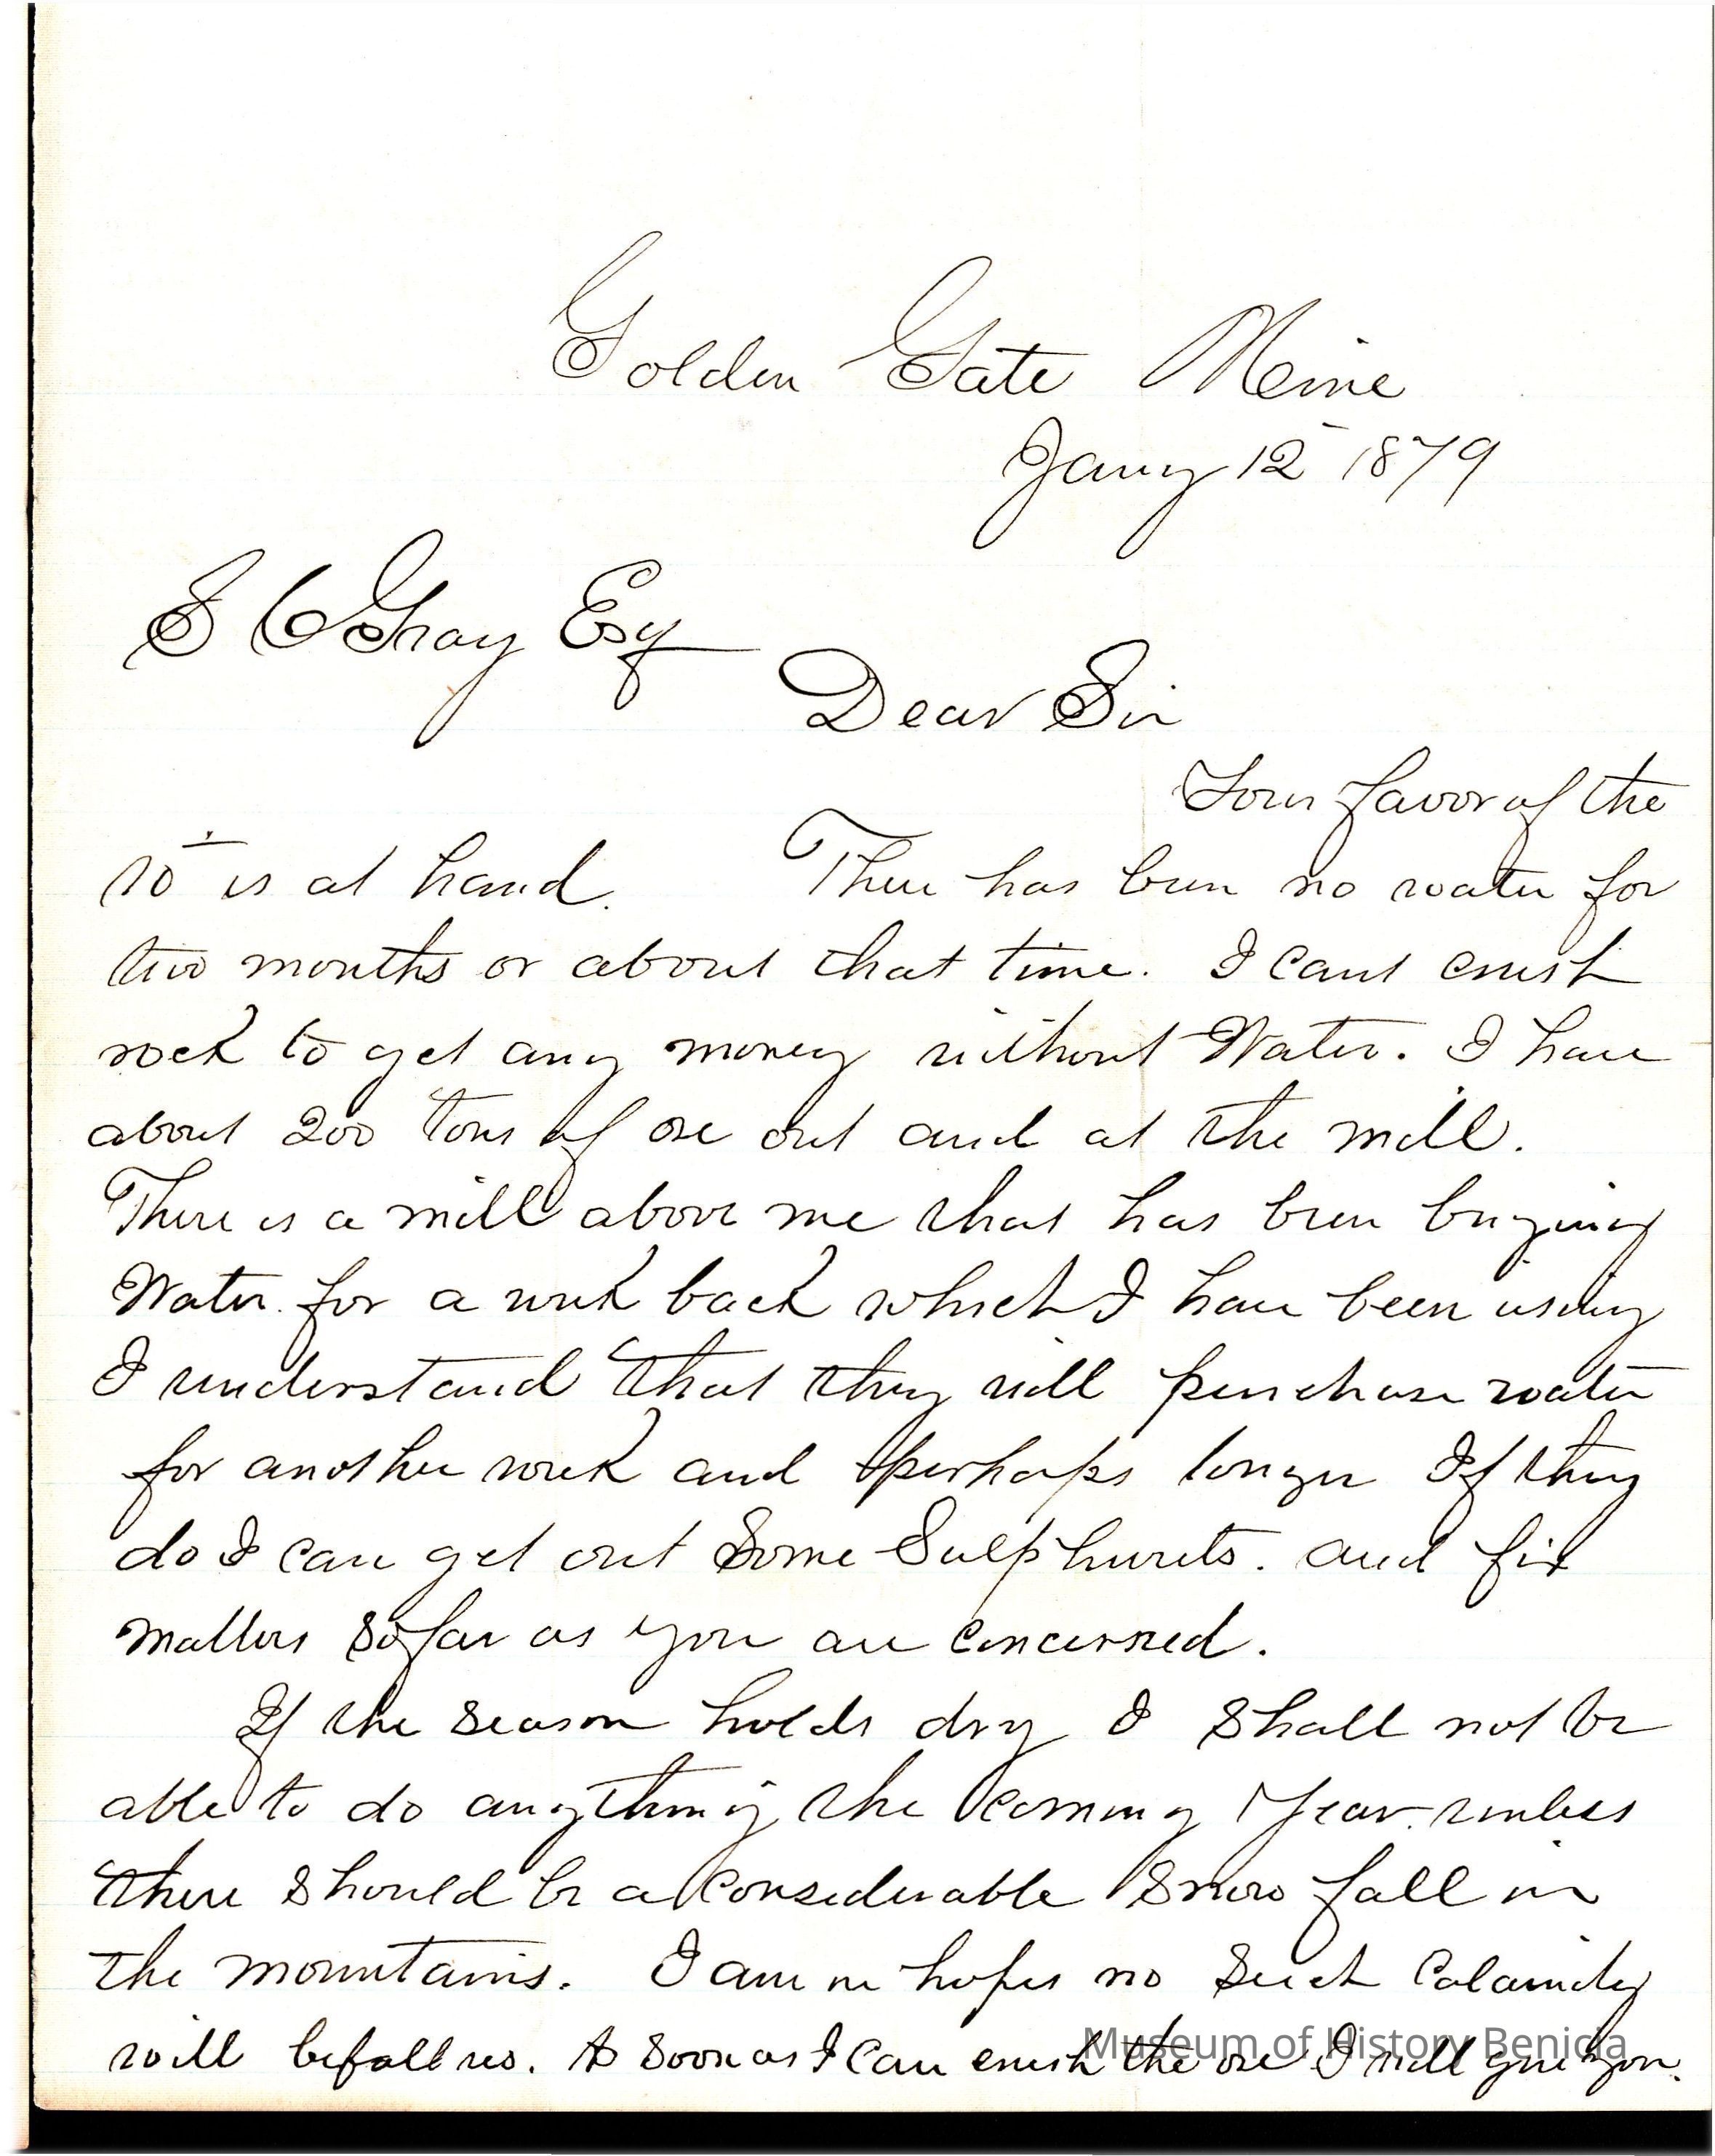 Golden Gate Mine
Jany 12 1879
S C Gray Esq
Dear Sir
Your favor of the
10 is at hand. There has been no water for
two months or about that time. I cant crush
rock to get any money without Water. I have
about 200 tons of ore out and at the mill.
There is a mill above me that has been buying
Water for a week back which I have been using
I understand that they will purchase water
for another week and perhaps longer If they
do I can get out Some Sulphurets. and fix
matters So far as you are Concerned.
If the Season holds dry I Shall not be
able to do anything the Coming Year. unless
there Should be a Considerable Snow fall in
the mountains. I am in hopes no Such Calamity
will befall us. As Soon as I Can crush the ore I will give you.
Museum of History Benicia